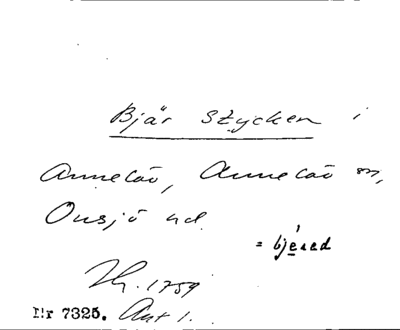 Bjär stycken i
Annelöv, Annelöv sn,
Onsjö hd.
= bjéred
Jb. 1759
Nr 7325. Akt 1.